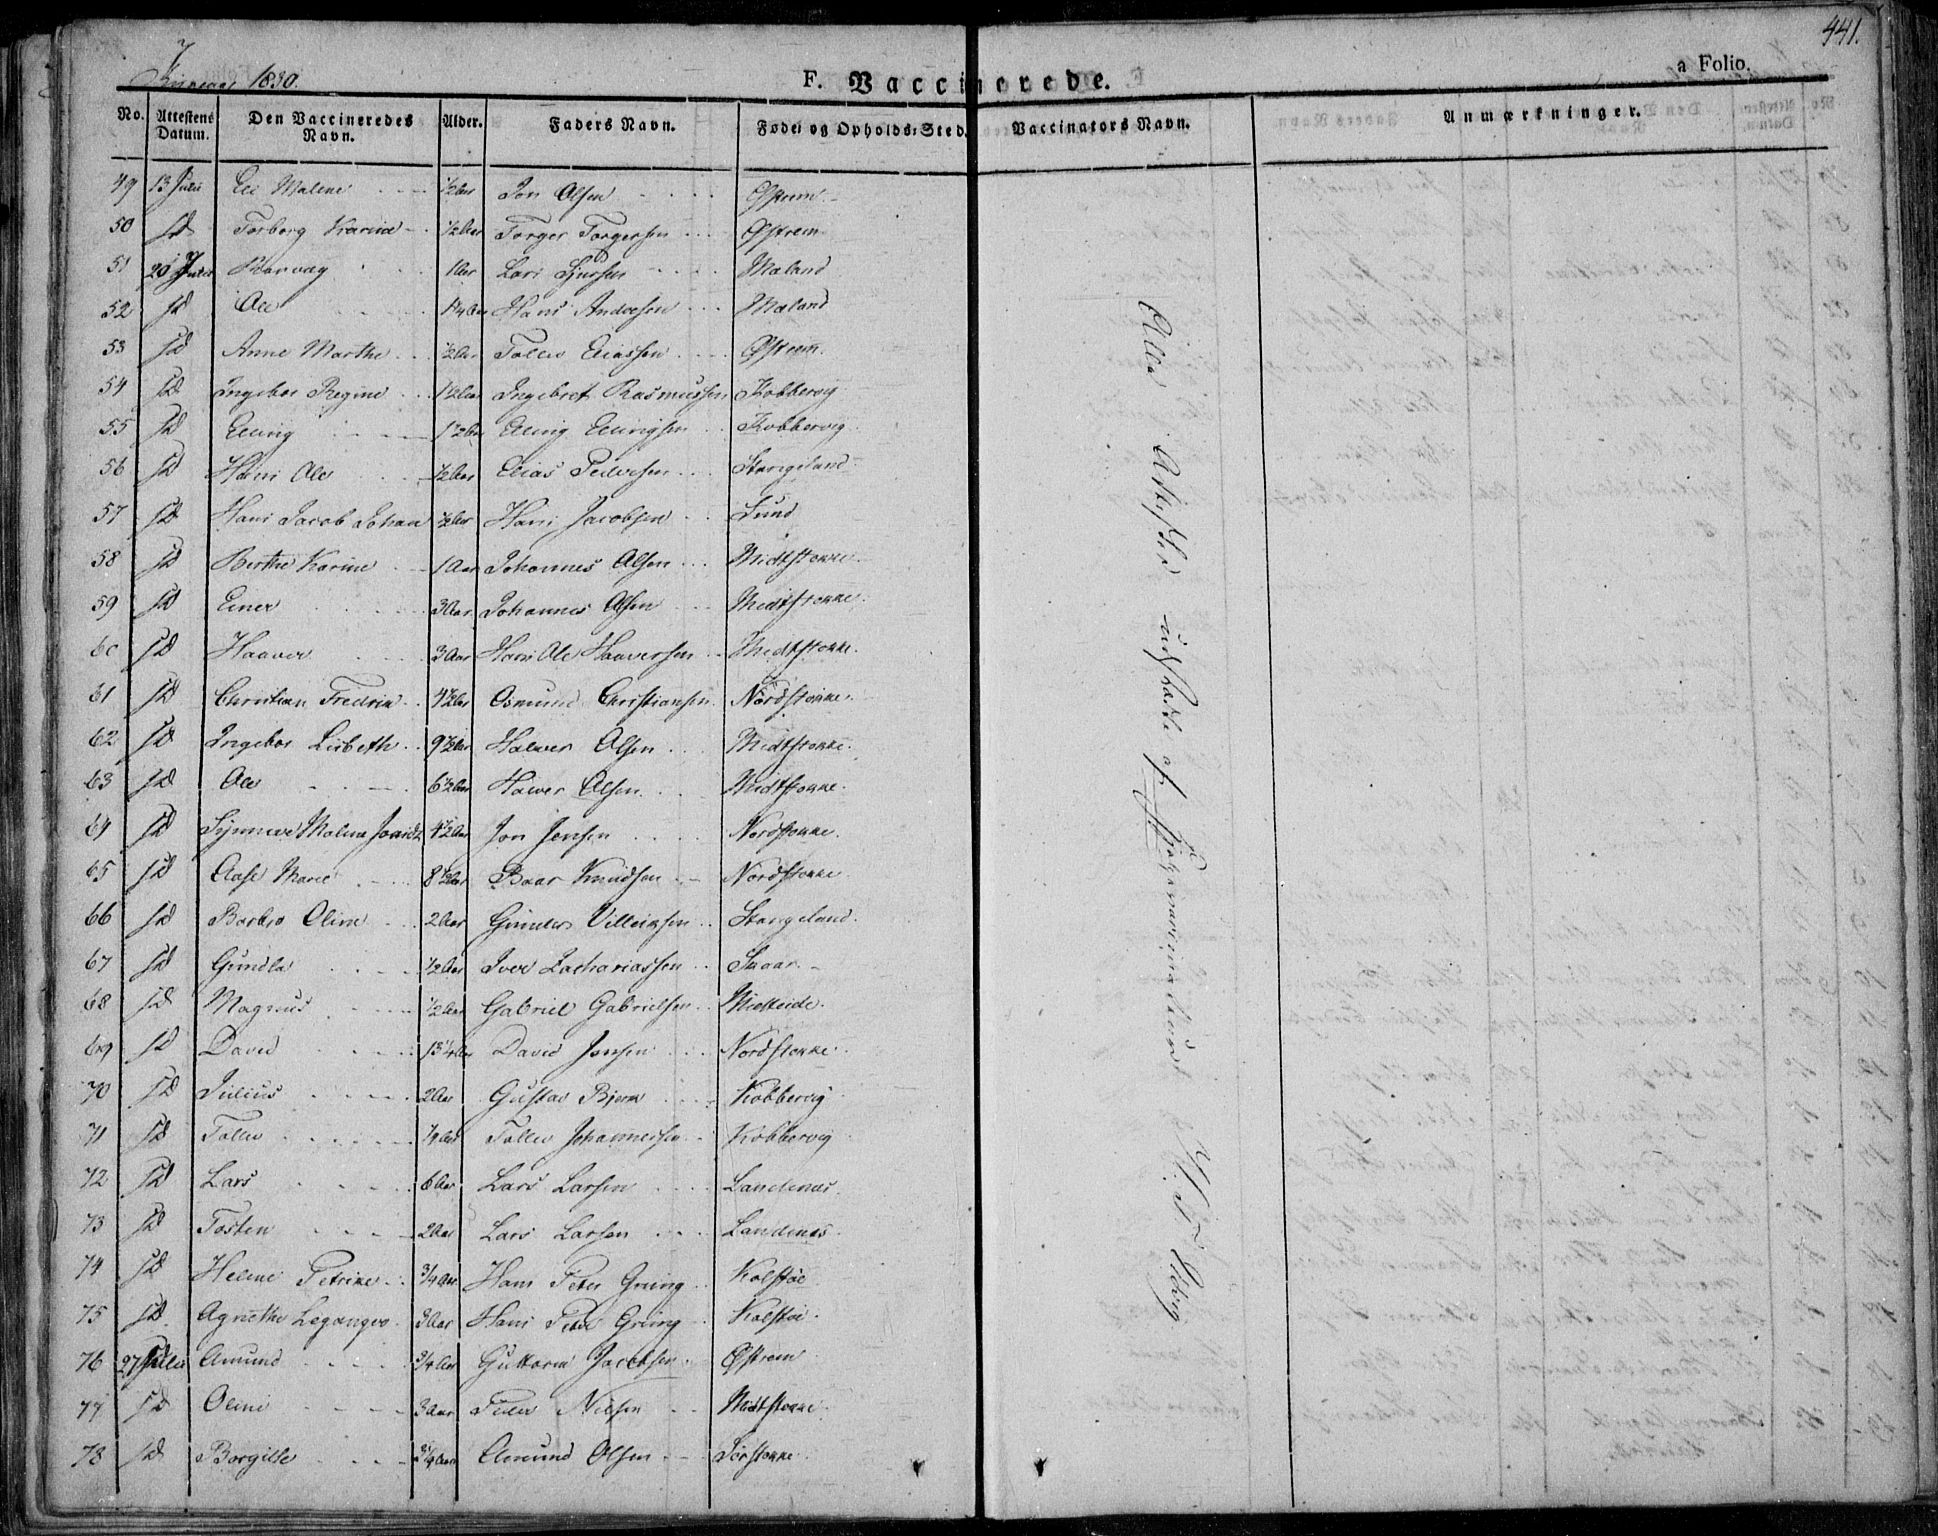 441.
1830.
F. Vaccinerede.
a Folio.
No. Attestens Datum. Den Vaccineredes Navn. Alder. Faders Navn. Føde- og Opholds-Sted. Vaccinators Navn. Anmærkninger.
49 13 Juli Malene ½ Aar Jon Olsen Østrem
50 sd Torborg Karine ½ Aar Torger Torgersen Østrem
51 1 Aar Lars Maland
52 sd Ole Hans Andersen Maland
53 sd Anne Marthe ½ Aar Tollev Eliassen Østrem
54 sd Ingebor Regine 1½ Aar Ingebret Rasmussen Kobbervig
55 sd Elling 1½ Aar Elling Ellingsen Kobbervig
56 sd Hans Ole ½ Aar Elias Pedersen Stangeland
57 sd Hans Jacob Johan ½ Aar Hans Jacobsen Lund
58 sd Berthe Karine 1 Aar Johannes Olsen Midtstokke
59 sd Einer 3 Aar Johannes Olsen Midtstokke
60 sd Haaver 3 Aar Hans Ole Haaversen Midtstokke
61 sd Christian Fredrik 4½ Aar Osmund Christiansen Nordstokke
62 sd Ingebor Lisbeth 9½ Aar Halver Olsen Midtstokke
63 sd Ole 6½ Aar Halver Olsen Midtstokke
64 sd Synneve Malene 4½ Aar Jon Jensen Nordstokke
65 sd Aase Marie 8½ Aar Baar Knudsen Nordstokke
66 sd Barbro Oline 2 Aar Gunder Villeiksen Stangeland
67 sd Gundla ½ Aar Iver Zachariassen Snaar
68 sd Magnus ½ Aar Gabriel Gabrielsen
69 sd David David Jensen Nordstokke
70 sd Julius 2 Aar Gustav Bjørn Kobbervig
71 sd Tollev Tollev Johannessen Kobbervig
72 sd Lars 6 Aar Lars Larsen Landenes
73 sd Tosten 2 Aar Lars Larsen Landenes
74 sd Helene Petrine ¾ Aar Hans Peter Gring Kolstøe
75 sd Agnethe Leganger 3 Aar Hans Peter Gring Kolstøe
76 27 Juli Amund ¾ Aar Guttorm Jacobsen Østrem
77 sd Oline 3 Aar Peder Nilsen Midtstokke
78 sd Borgille Amund Olsen Sørstokke
Alle Attester udstædte af